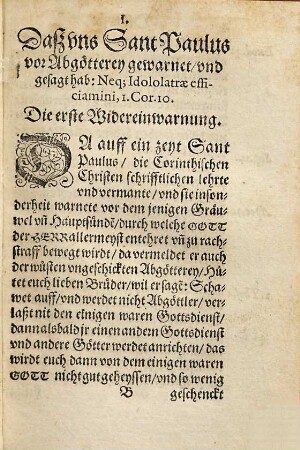 1.
Daß vns Sant Paulus
vor Abgötterey gewarnet/vnd
gesagt hab: Neq; Idololatræ effi-
ciamini, 1. Cor. 10.
Die erste Widereinwarnung.
DA auff ein zeyt Sant
Paulus/ die Corinthischen
Christen schrifftlichen lehrte
vnd vermante/ vnd sie inson-
derheit warnete vor dem jenigen Gräu-
wel vñ Hauptsündē/ durch welche GOTT
der HERR allermeyst entehret vñ zu rach-
straff bewegt wirdt/ da vermeldet er auch
der wüsten vngeschickten Abgötterey/ Hü-
tet euch lieben Brüder/ wil er sagē: Scha-
wet auff/ vnd werdet nicht Abgöttler/ ver-
laßt nit den einigen waren Gottsdienst/
dann alsbald jr einen andern Gottsdienst
vnd andere Götter werdet anrichten/ das
wirdt euch dann von dem einigen waren
GOTT nicht gut geheyssen/ vnd so wenig
B geschenckt